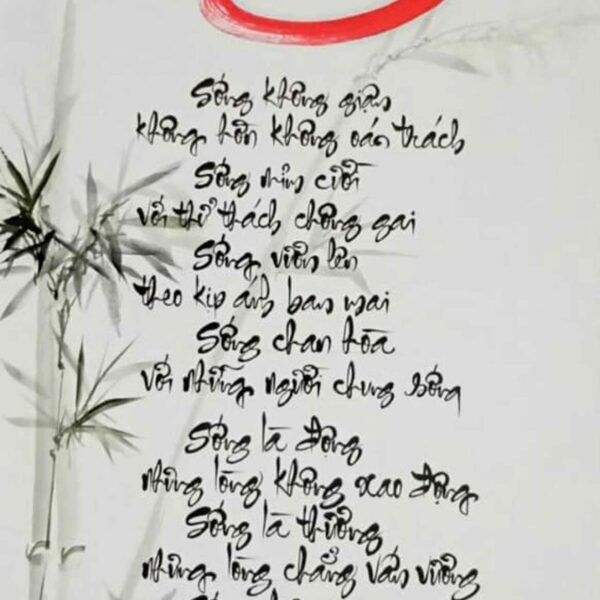 Sống không giận
không hờn không oán trách
Sống mỉm cười
với thử thách chông gai
Sống vươn lên
theo kịp ánh ban mai
Sống chan hòa
với những người chung sống
Sống là động
nhưng lòng không xao động
Sống là thương
nhưng lòng chẳng vấn vương
Sống